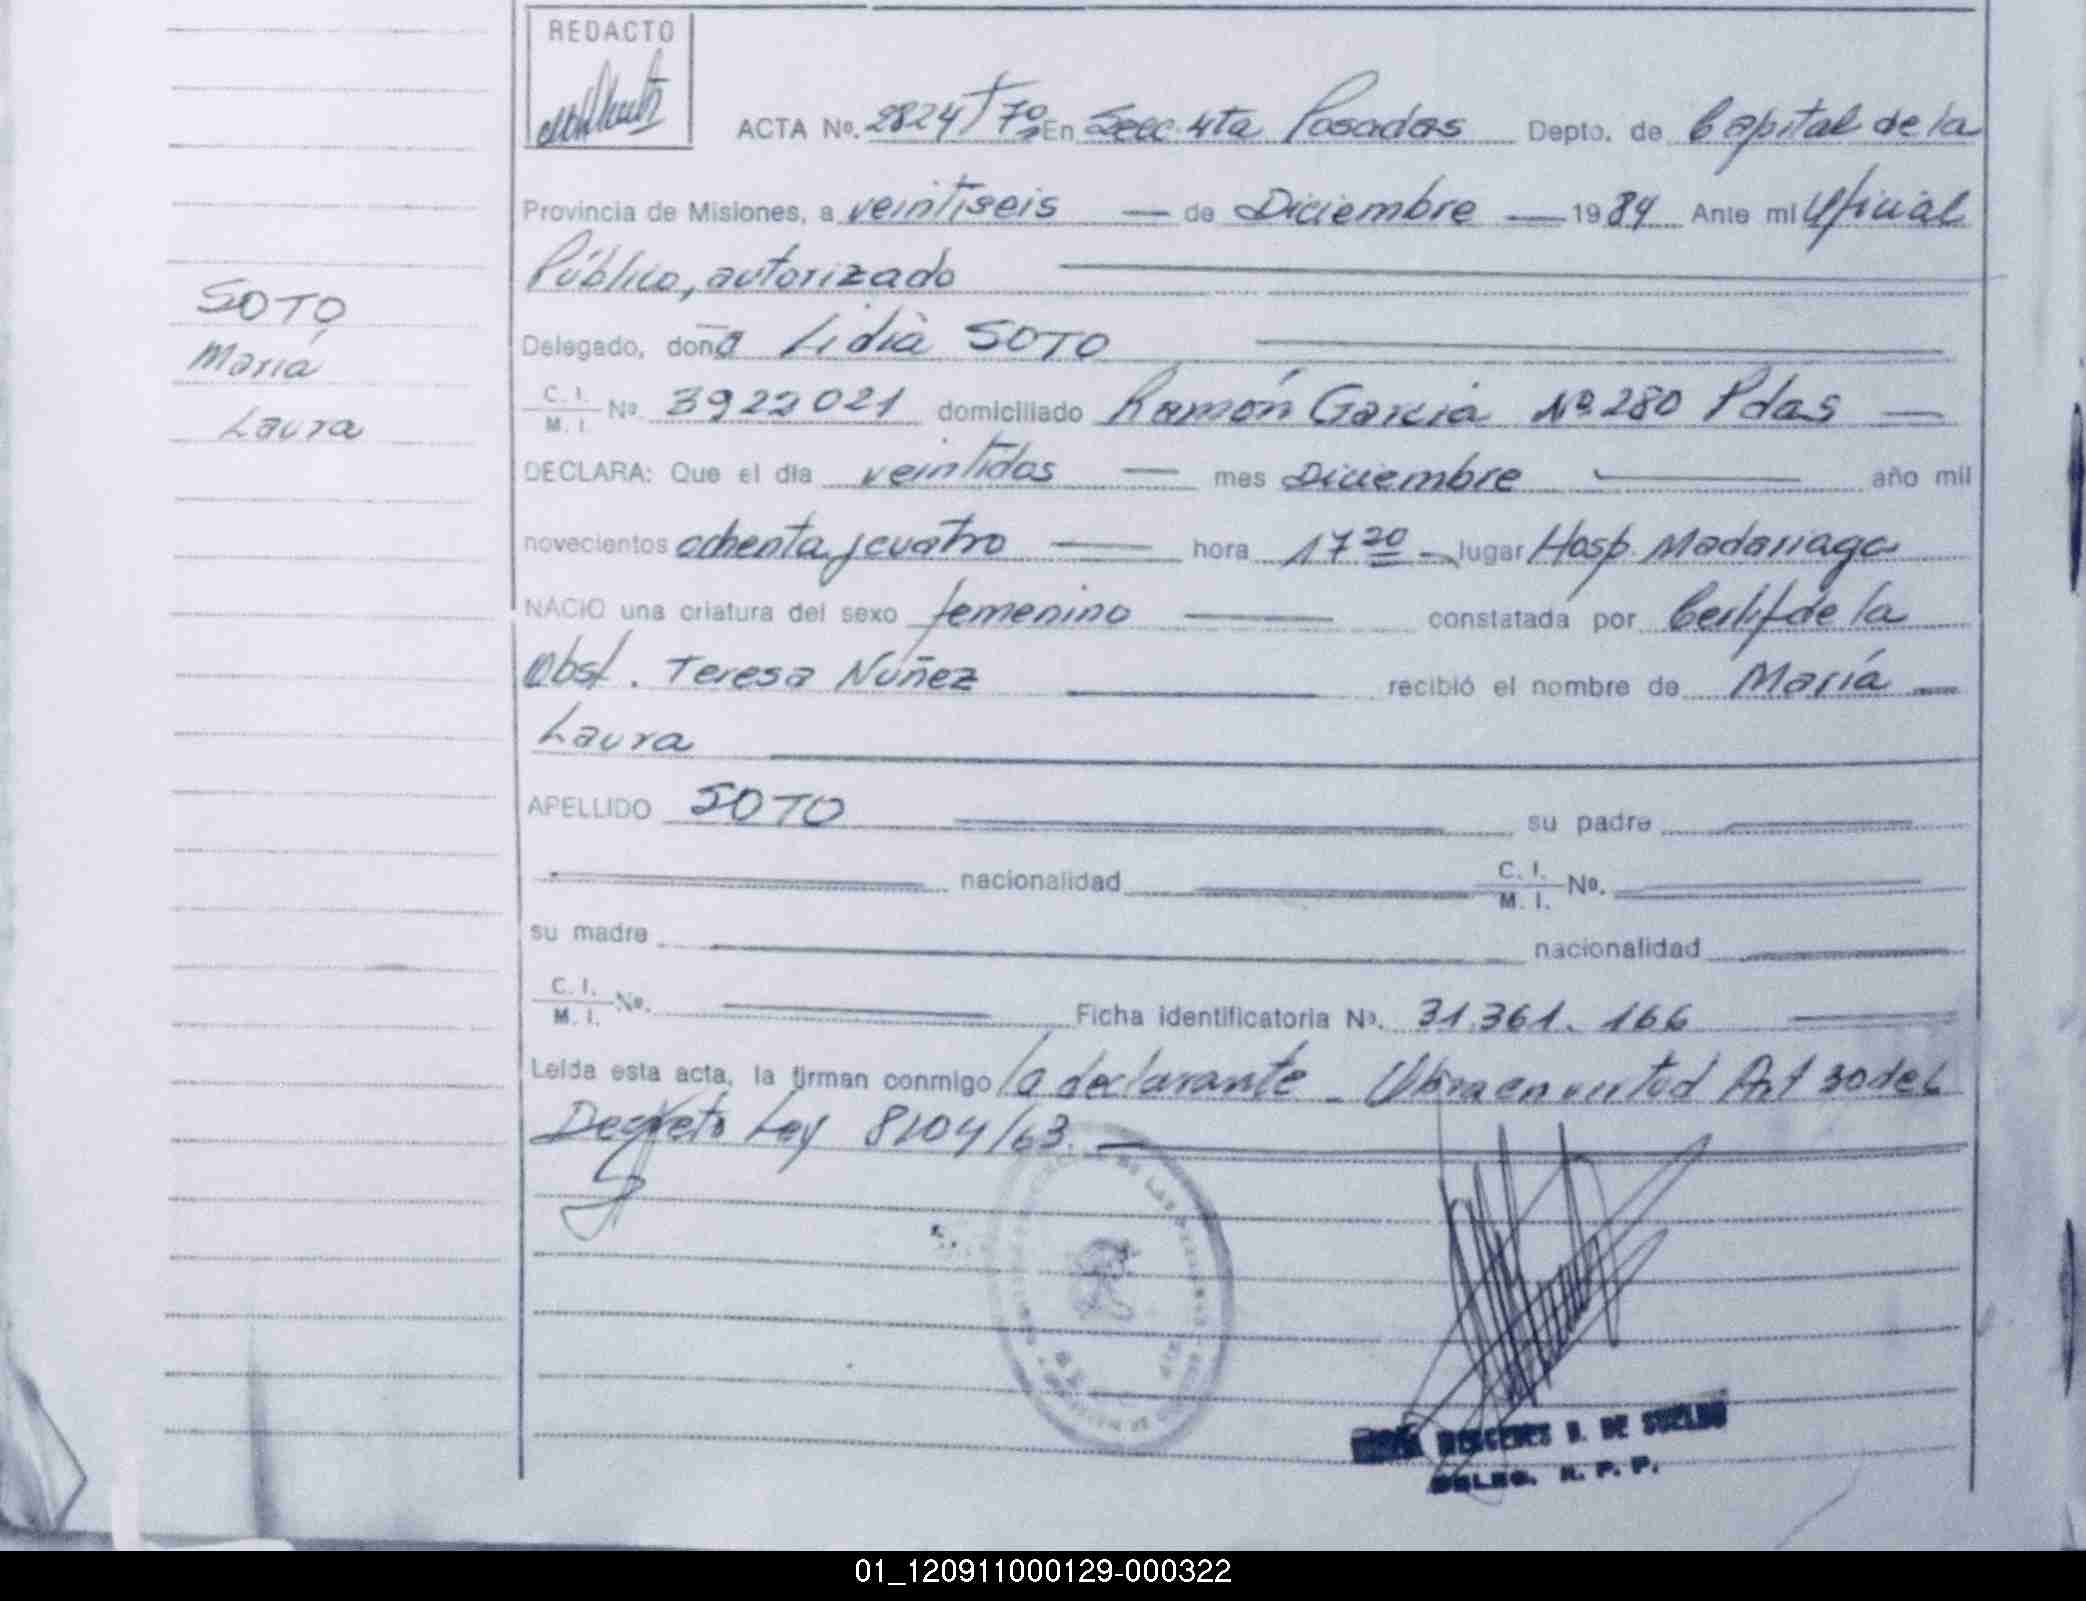 REDACTO
ACTA Nº. 2824 T 7º, En Secc. 4ta Posadas Depto. de Capital de la
Provincia de Misiones, a veintiseis de Diciembre 1984 Ante mi Oficial
Público, autorizado
Delegado, doña Lidia SOTO
C. I. / M. I. Nº 3922021 domiciliado Ramón Garcia Nº 280 Pdas
DECLARA: Que el dia veintidos mes Diciembre año mil
novecientos ochenta y cuatro hora 17 20 lugar Hosp. Madariaga
NACIO una criatura del sexo femenino constatada por Certif de la
Obst. Teresa Nuñez recibió el nombre de María
Laura
APELLIDO SOTO su padre
nacionalidad C. I. / M. I. Nº.
su madre nacionalidad
C. I. / M. I. Nº. Ficha identificatoria Nº. 31.361.166
Leida esta acta, la firman conmigo la declarante - en virtud Art 30 del
Decreto Ley 8204/63.
SOTO
María
Laura
MERCEDES B. DE SUELDO
DELEG. R. P. P.
01_120911000129-000322